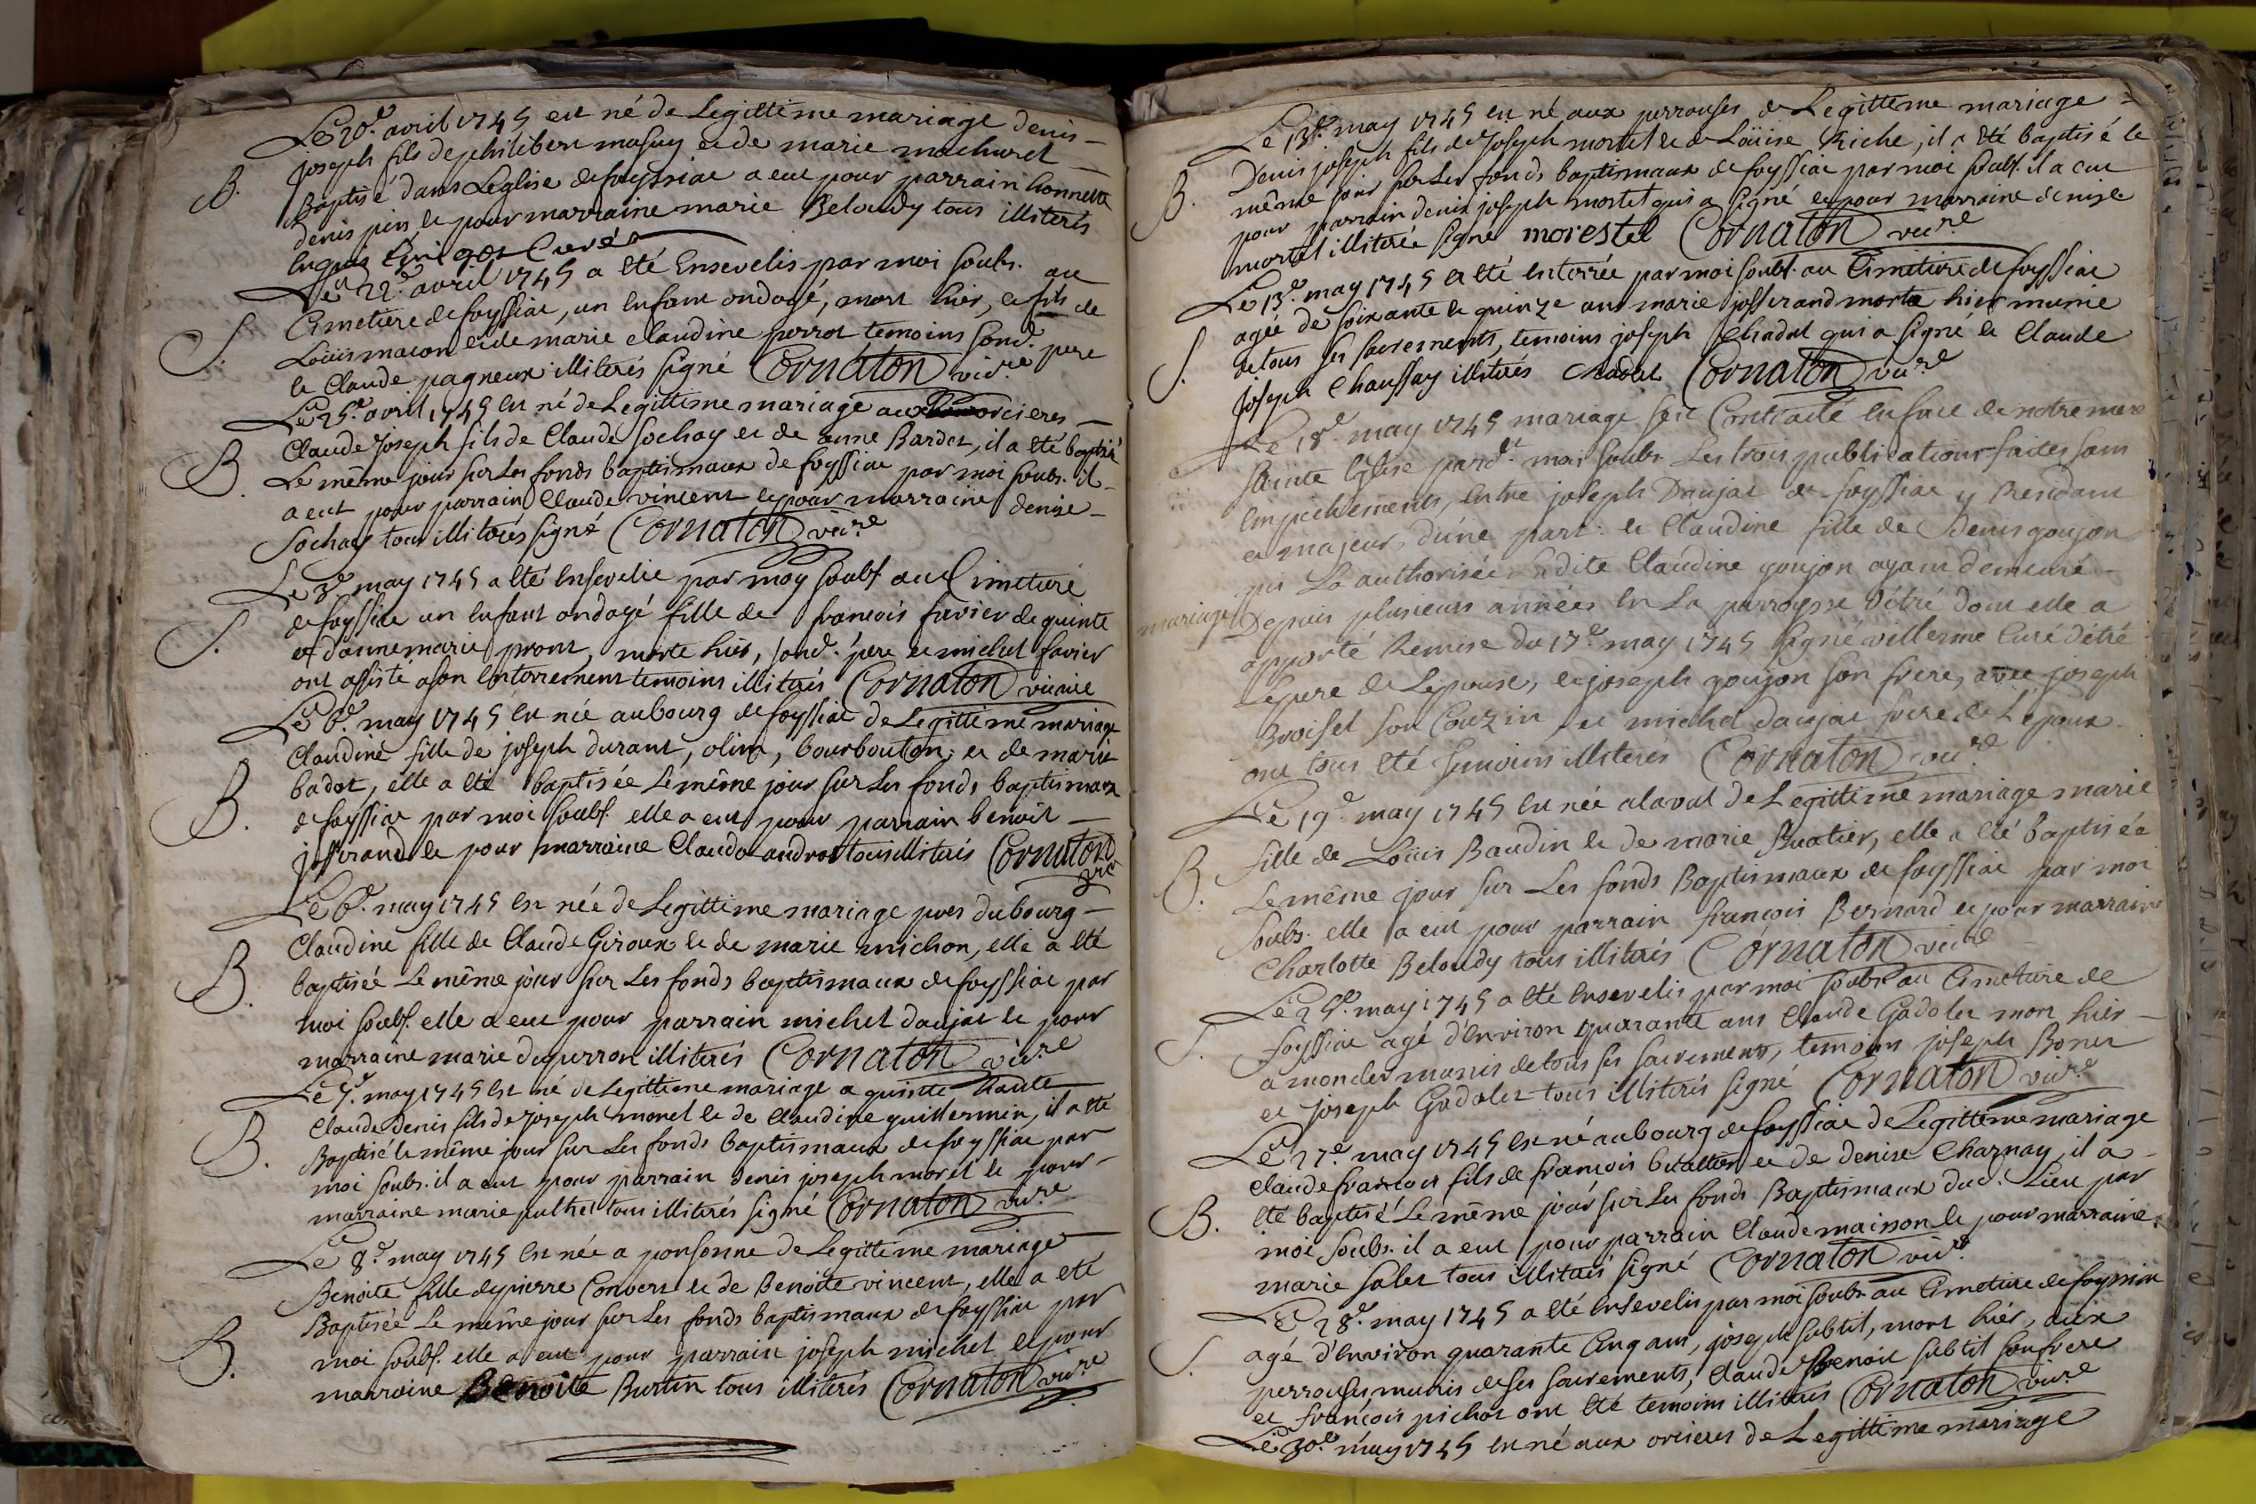 Le 20e. avril 1745 est né de Legittime mariage denis
joseph fils de philibert masuy et de marie machuret
B.
Baptisé dans Leglise de foyssiac a eut pour parrain honnette
denis pin et pour marraine marie Beloudy tous illiterés
Le 22e. avril 1745 a été Ensevelis par moi soubs. au
S.
Cimetiere de foyssiac, un Enfant ondoyé, mort hier, et fils de
Loüis macon et de marie claudine perrot temoins sond. pere
et Claude pagneux illiterés signé Cornaton vicre
Le 25e. avril 1745 est né de Legittime mariage aux orcieres
Claude Joseph fils de Claude Sochay et de anne Bardet, il a été baptisé
B.
Le même jour sur Les fonds baptismaux de foyssiac par moi soubs. il
a eut pour parrain Claude vincent et pour marraine denise
Sochay tous illiterés signé Cornaton vicre
Le 3e may 1745 a été Ensevelie par moy soubs. au Cimetiere
de foyssiac un Enfant ondoyé fille de francois favier de quinte
S.
et danne marie pront, morte hier, sond. pere et michel favier
ont assisté a son Enterrement temoins illiterés Cornaton vicaire
Le 6e may 1745 est née au bourg de foyssiac de Legittime mariage
Claudine fille de joseph durant, olim, bourbouton, et de marie
B.
badot, elle a été baptisée Le même jour sur Les fonds baptismaux
de foyssiac par moi soubs. elle a eut pour parrain benoit
josserand et pour marraine Clauda andrea tous illiterés Cornaton
vic
Le 6e. may 1745 est née de Legittime mariage pres du bourg
Claudine fille de Claude Giroux et de marie michon, elle a été
B.
baptisée Le même jour sur Les fonds baptismaux de foyssiac par
moi soubs. elle a eut pour parrain michel daujat et pour
marraine marie duperron illiterés Cornaton vicre
Le 7e. may 1745 est né de Legittime mariage a quinte haute
Claude denis fils de joseph morel et de Claudine guillermin, il a été
B.
Baptisé le même jour sur Les fonds baptismaux de foyssiac par
moi soubs. il a eut pour parrain denis joseph morel et pour
marraine marie puthet tous illiterés signé Cornaton vicre
Le 8e. may 1745 est née a ponsonne de Legittime mariage
Benoite fille de pierre Convert et de Benoite vincent, elle a été
Baptisée Le même jour sur Les fonds baptismaux de foyssiac par
B.
moi soubs. elle a eut pour parrain joseph michel et pour
marraine Benoite Burtin tous illiterés Cornaton vicre
Le 13e. may 1745 est né aux perrouses de Legittime mariage
Denis joseph fils de Joseph mortel et de Loüise Riche, il a été baptisé le
B.
même jour sur Les fonds baptismaux de foyssiac par moi soubs. il a eut
pour parrain denis joseph mortel qui a signé et pour marraine denise
mortel illiterée signé morestel Cornaton vicre
Le 13e. may 1745 a été Enterrée par moi soubs. au Cimetiere de foyssiac
agée de soixante et quinze ans marie josserand morte hier munie
S.
de tous ses sacrements, temoins joseph Chadal qui a signé et Claude
Joseph Chaussay illiterés Chadal Cornaton vicre
Le 18e. may 1745 mariage fait Contracté En face de notre mere
Sainte Eglise pard. moi soubs. Les trois publications faites sans
Empechements, Entre joseph Daujat de foyssiac y Residant
et majeur, d'une part: et Claudine fille de Denis goujon
qui L'a authorisée Ladite Claudine goujon ayant demeuré
mariage
Depuis plusieurs années En La parroysse d'étré dont elle a
apporté Remise du 17e may 1745 signé villerme Curé d'étré
Le pere de L'epouse, et joseph goujon son frere, avec joseph
Broiset son Couzin et michel daujat frere de L'epoux
ont tous été temoins illiteres Cornaton vicre
Le 19e. may 1745 est née a laval de Legittime mariage marie
fille de Loüis Baudin et de marie Buatier, elle a été baptisée
B.
Le même jour sur Les fonds Baptismaux de foyssiac par moi
soubs. elle a eut pour parrain françois Bernard et pour marraine
Charlotte Beloudy tous illiterés Cornaton vicre
Le 25e. may 1745 a été Ensevelis par moi soubs. au Cimetiere de
S.
foyssiac agé d'Environ quarante ans Claude Gadolet mort hier
a moncler munis de tous ses sacrements, temoins joseph Bonet
et joseph Gadolet tous illiterés signé Cornaton vicre
Le 27e. may 1745 est né au bourg de foyssiac de Legittime mariage
Claude francois fils de francois buatier et de denise Charnay, il a
B.
été baptisé Le même jour sur Les fonds Baptismaux dud. Lieu par
moi soubs. il a eut pour parrain Claude maisson et pour marraine
marie Salet tous illiterés signé Cornaton vicre
Le 28e. may 1745 a été Ensevelis par moi soubs. au Cimetiere de foyssiac
S.
agé d'Environ quarante Cinq ans, joseph subtil, mort hier, aux
perrouses munis de ses sacrements, Claude Benoit subtil son frere
et françois pichot ont été temoins illiterés Cornaton vicre
Le 30e. may 1745 est né aux orcieres de Legittime mariage